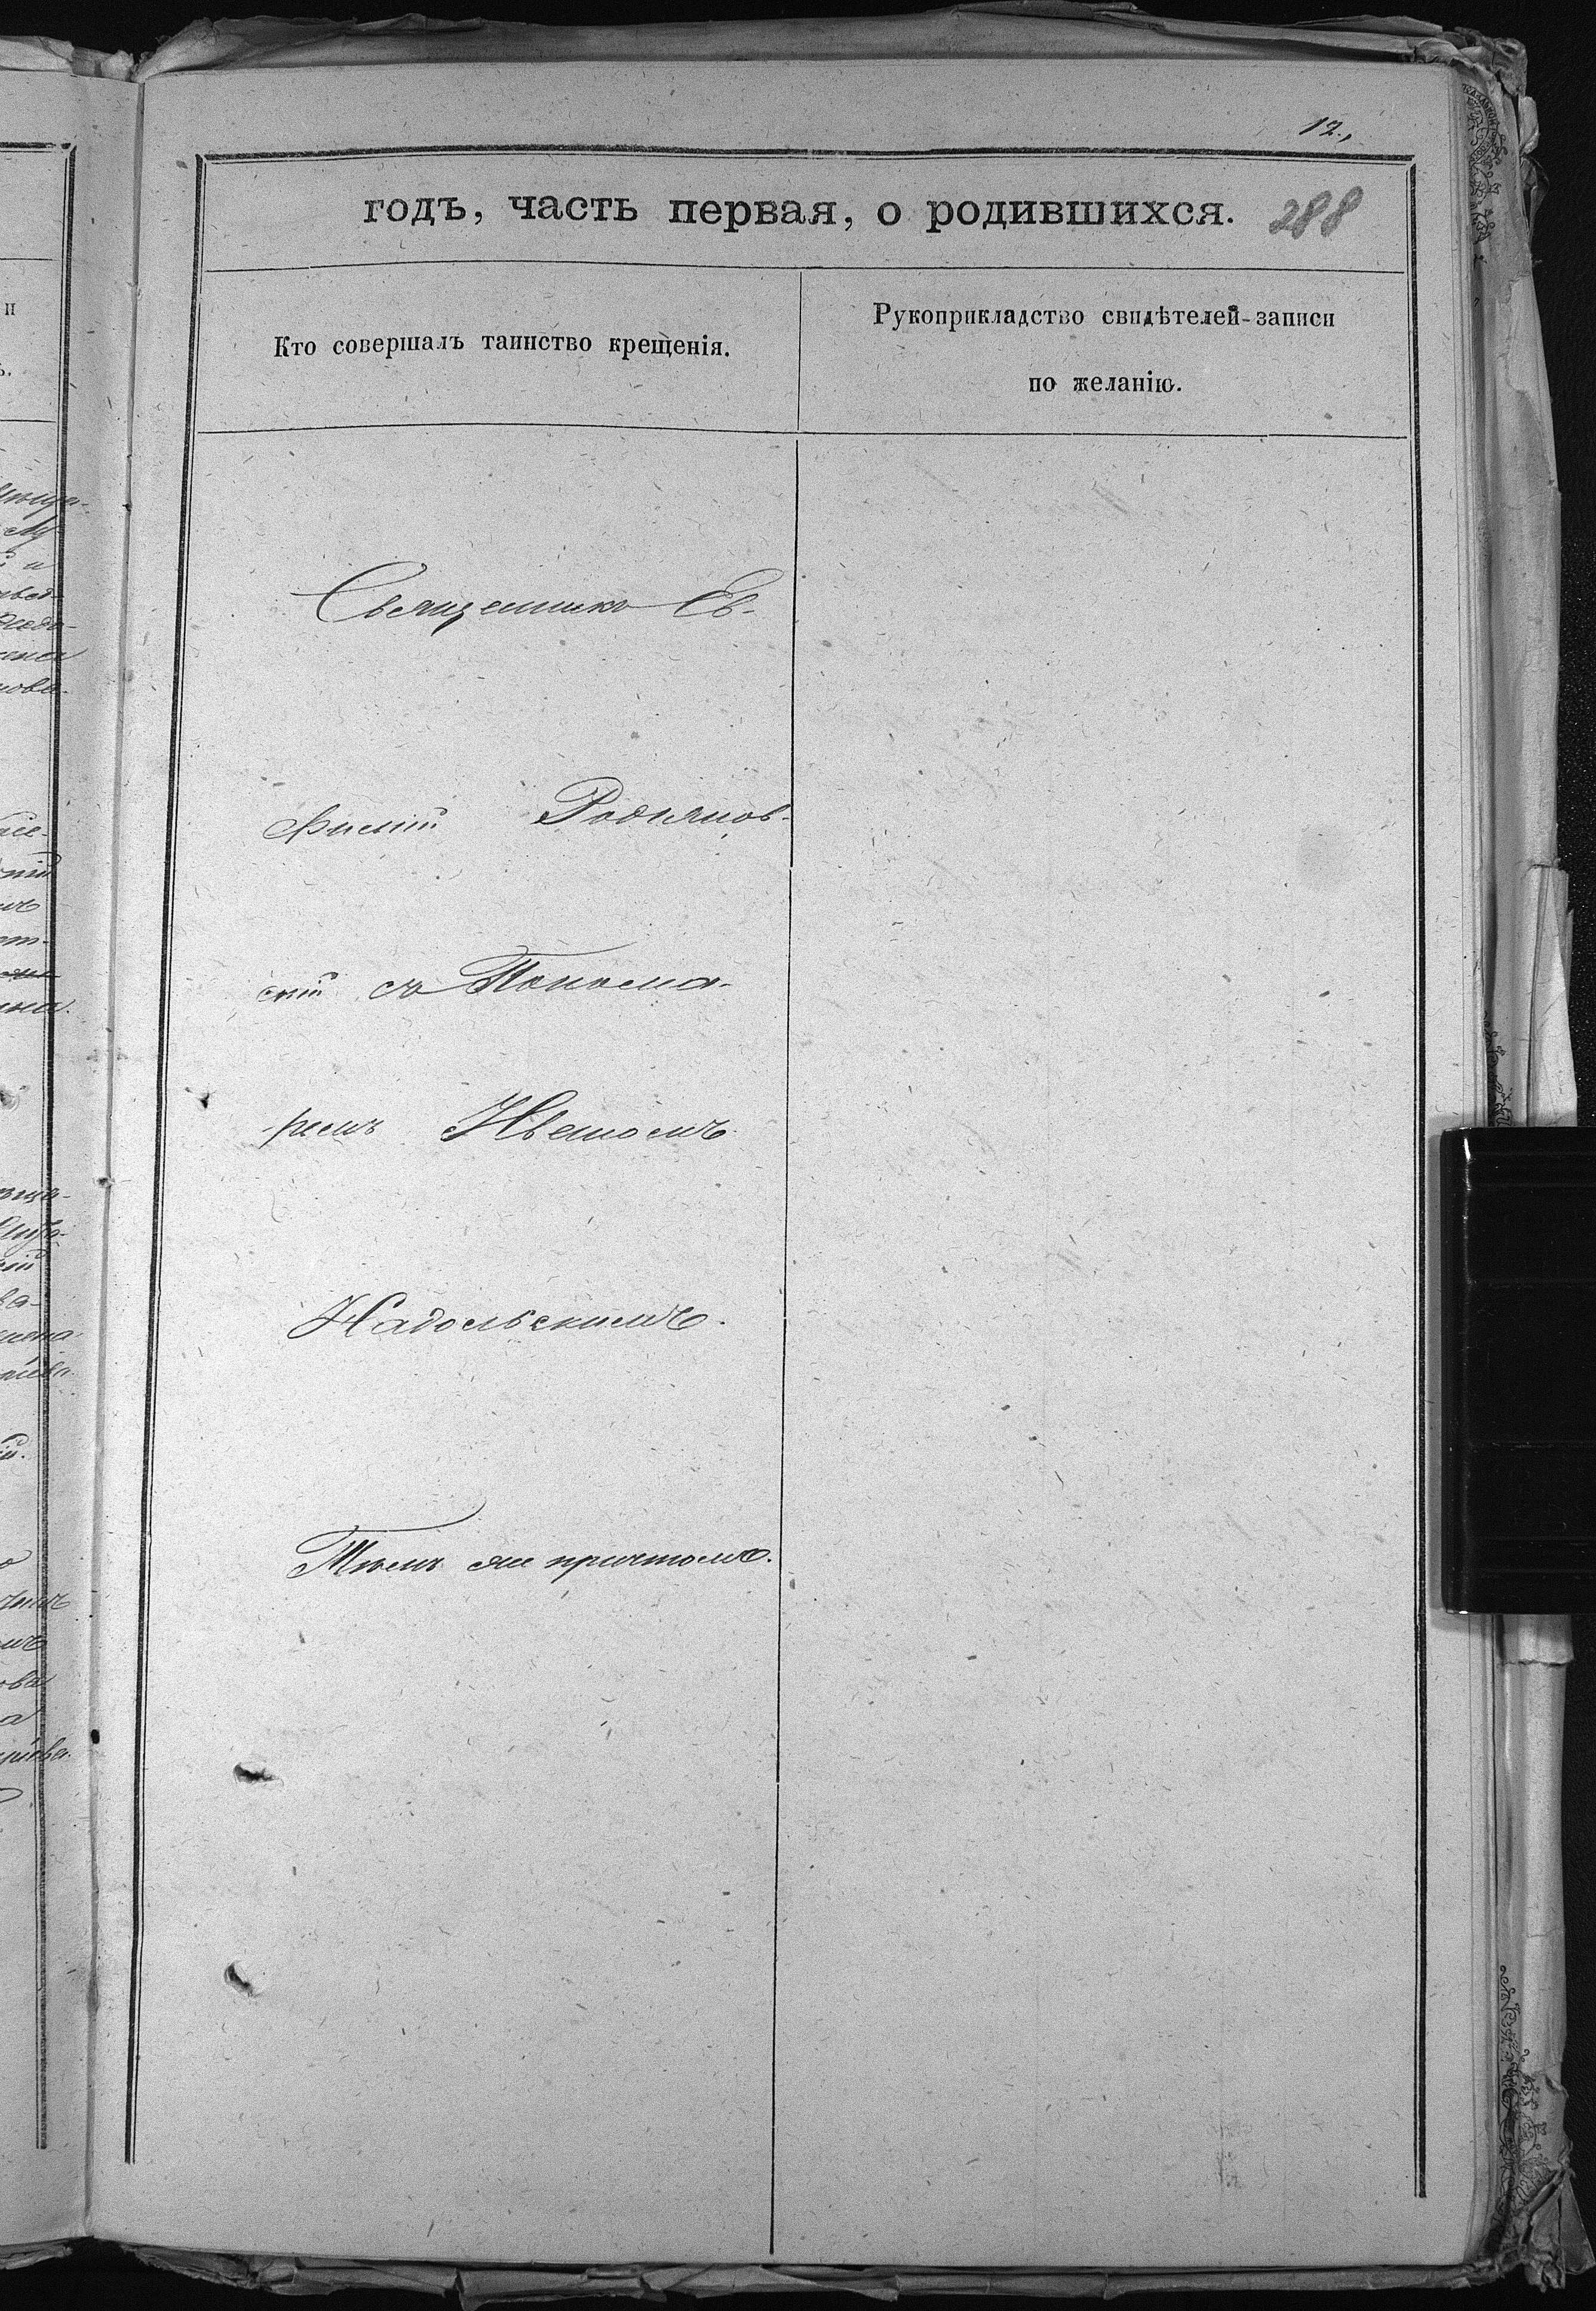 12.,
годъ, часть первая, о родившихся. 288
Кто совершалъ таинство крещенія.
Рукоприкладство свидѣтелей-записи
по желанію.
Священникъ Ев-
фимій Родіонов-
скій съ Понома-
ремъ Иваномъ
Надольскимъ.
Тѣмъ же причтомъ.